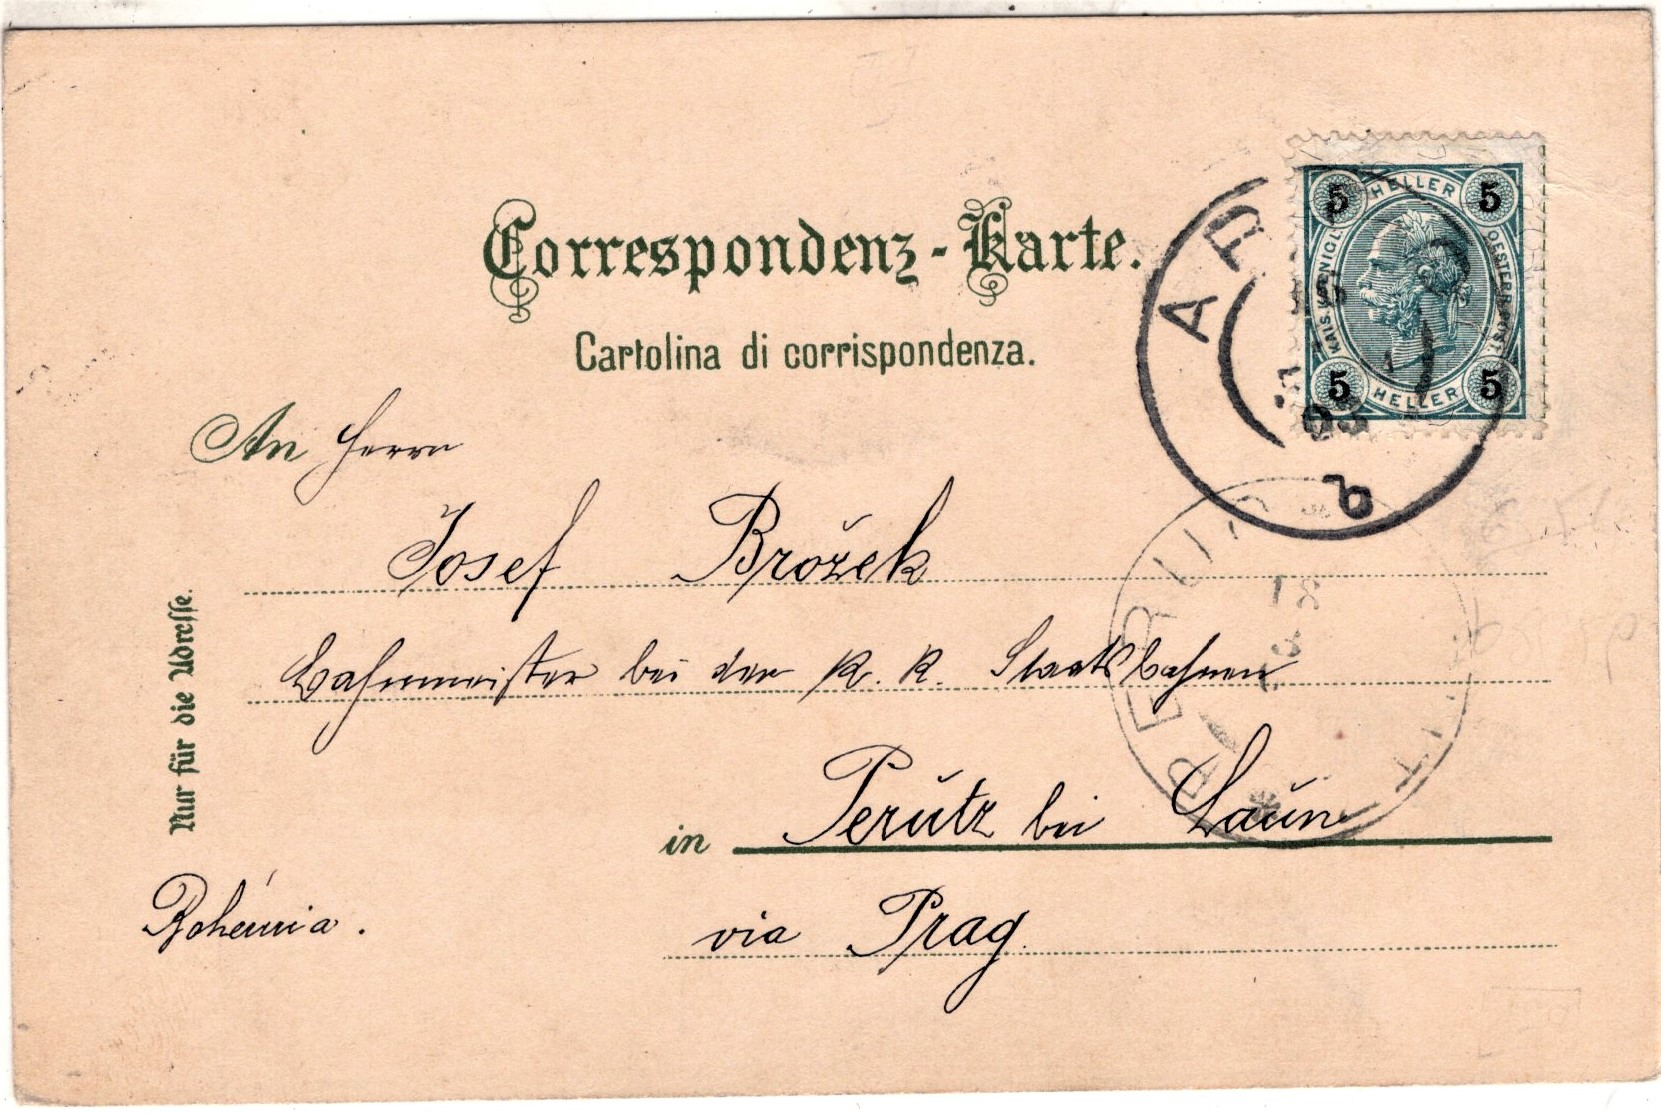 Correspondenz-Karte.
Cartolina di corrispondenza.
5 HELLER 5
KAIS. KÖNIGL. OESTERR. POST
5 HELLER 5
AR
b
An Herrn
Josef Brožek
Bahnmeister bei der k. k. Staatsbahnen
in Perutz bei Laun
via Prag
Bohemia.
Nur für die Adresse.
PERUC